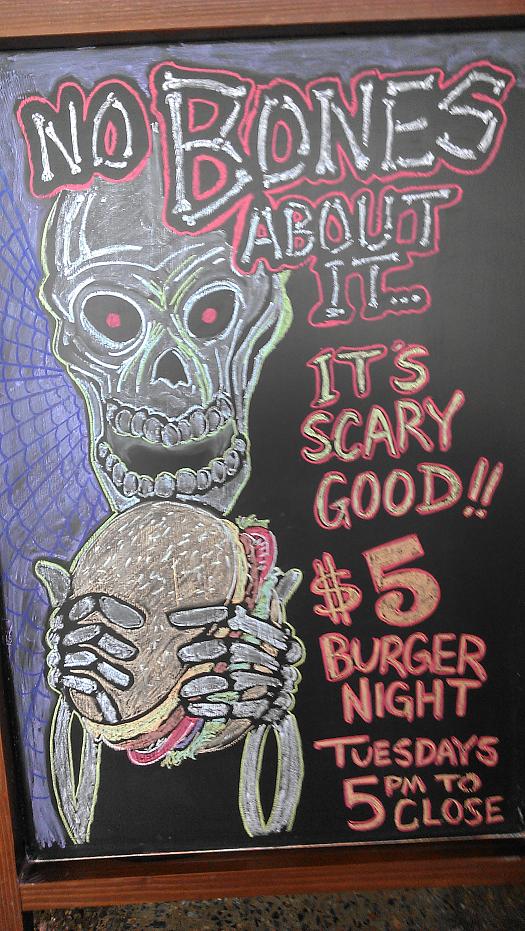 NO BONES
ABOUT
IT...
IT'S
SCARY
GOOD!!
$5
BURGER
NIGHT
TUESDAYS
5 PM TO
CLOSE